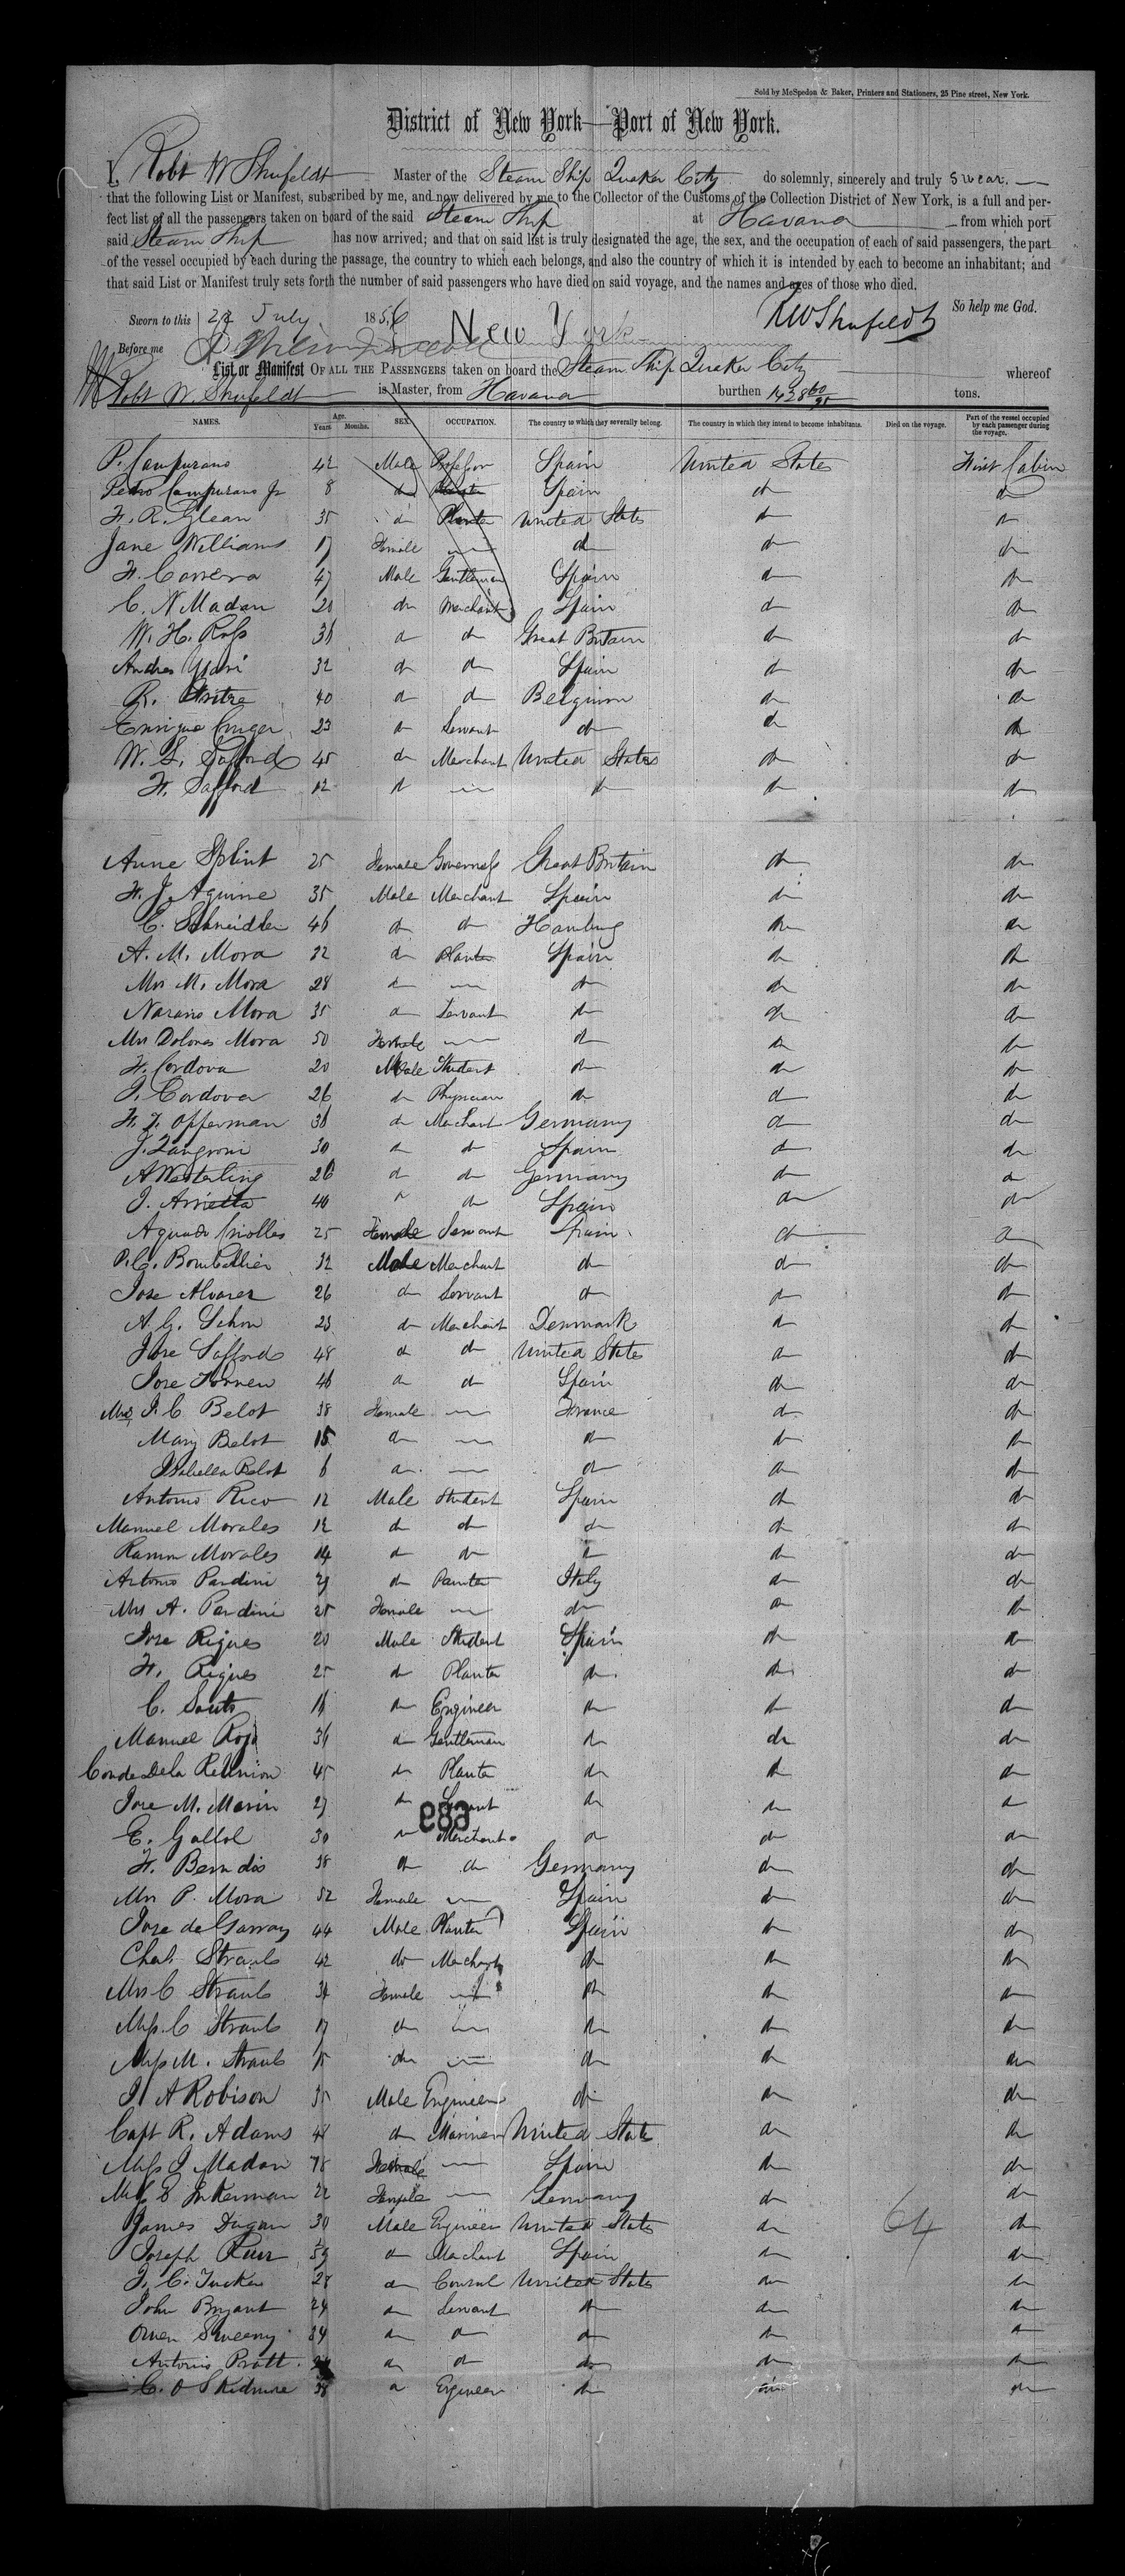 Sold by McSpedon & Baker, Printers and Stationers, 25 Pine street, New York.
District of New York—Port of New York.
I, Robt W Shufeldt Master of the Steam Ship Quaker City do solemnly, sincerely and truly swear.
that the following List or Manifest, subscribed by me, and now delivered by me to the Collector of the Customs of the Collection District of New York, is a full and per-
fect list of all the passengers taken on board of the said Steam Ship at Havana from which port
said Steam Ship has now arrived; and that on said list is truly designated the age, the sex, and the occupation of each of said passengers, the part
of the vessel occupied by each during the passage, the country to which each belongs, and also the country of which it is intended by each to become an inhabitant; and
that said List or Manifest truly sets forth the number of said passengers who have died on said voyage, and the names and ages of those who died.
So help me God.
Sworn to this 22 July 1856 New York RW Shufeldt
Before me
List or Manifest OF ALL THE PASSENGERS taken on board the Steam Ship Quaker City whereof
Robt W. Shufeldt is Master, from Havana burthen 1428 60/95 tons.
NAMES. Age. Years. Months. SEX. OCCUPATION. The country to which they severally belong. The country in which they intend to become inhabitants. Died on the voyage. Part of the vessel occupied by each passenger during the voyage.
P. Campurano 42 Male Professor Spain United States First Cabin
Pedro Campurano Jr 8 do Spain do do
F. R. Glean 35 do Planter United States do do
Jane Williams 17 Female — do do do
F. Carrera 47 Male Gentleman Spain do do
C. N Madan 20 do Merchant Spain do do
W. H. Ross 36 do do Great Britain do do
Andres 32 do do Spain do do
R. 40 do do Belgium do do
Enrique Cruger 23 do Servant do do do
W. S. Safford 45 do Merchant United States do do
F. Safford 12 do — do do do
Anne Splint 25 Female Governess Great Britain do do
F. J. Aguirre 35 Male Merchant Spain do do
C. Schneidler 46 do do Hamburg do do
A. M. Mora 32 do Planter Spain do do
Mrs M. Mora 28 do — do do do
Mora 35 do Servant do do do
Mrs Dolores Mora 50 Female — do do do
F. Cordova 20 Male Student do do do
J. Cordova 26 do Physician do do do
F. J. Opperman 36 do Merchant Germany do do
J. Zangroni 30 do do Spain do do
A Westerling 26 do do Germany do do
J. Arrietta 40 do do Spain do do
Criolles 25 Female Servant Spain do do
P. C. Bomballier 32 Male Merchant do do do
Jose Alvarez 26 do Servant do do do
A. G. 23 do Merchant Denmark do do
Jose Safford 48 do do United States do do
Jose 46 do do Spain do do
Mrs J. C Belot 38 Female — France do do
Mary Belot 15 do — do do do
Isabella Belot 6 do — do do do
Antonio Rico 12 Male Student Spain do do
Manuel Morales 12 do do do do do
Ramon Morales 14 do do do do do
Antonio Pardini 29 do Painter Italy do do
Mrs A. Pardini 25 Female — do do do
Jose Rigues 20 Male Student Spain do do
F. Rigues 25 do Planter do do do
C. 16 do Engineer do do do
Manuel 36 do Gentleman do do do
Conde De la Reunion 45 do Planter do do do
Jose M. Marin 27 do Servant do do do
689
E. Gallol 30 do Merchant do do do
F. 38 do do Germany do do
Mrs P. Mora 52 Female — Spain do do
Jose de Garray 44 Male Planter Spain do do
Chas. Straub 42 do Merchant do do do
Mrs C Straub 34 Female — do do do
Miss C Straub 17 do — do do do
Miss M. Straub 15 do — do do do
J A Robison 35 Male Engineer do do do
Capt R. Adams 48 do Mariner United States do do
Miss J Madan 18 Female — Spain do do
22 Female — Germany do do
James Dugan 30 Male Engineer United States do 64 do
Joseph 59 do Merchant Spain do do
J. C. Tucker 28 do Consul United States do do
John Bryant 24 do Servant do do do
Owen Sweeny 34 do do do do do
Antonio Pratt do do do do do
C. O Skidmore 38 do Engineer do do do